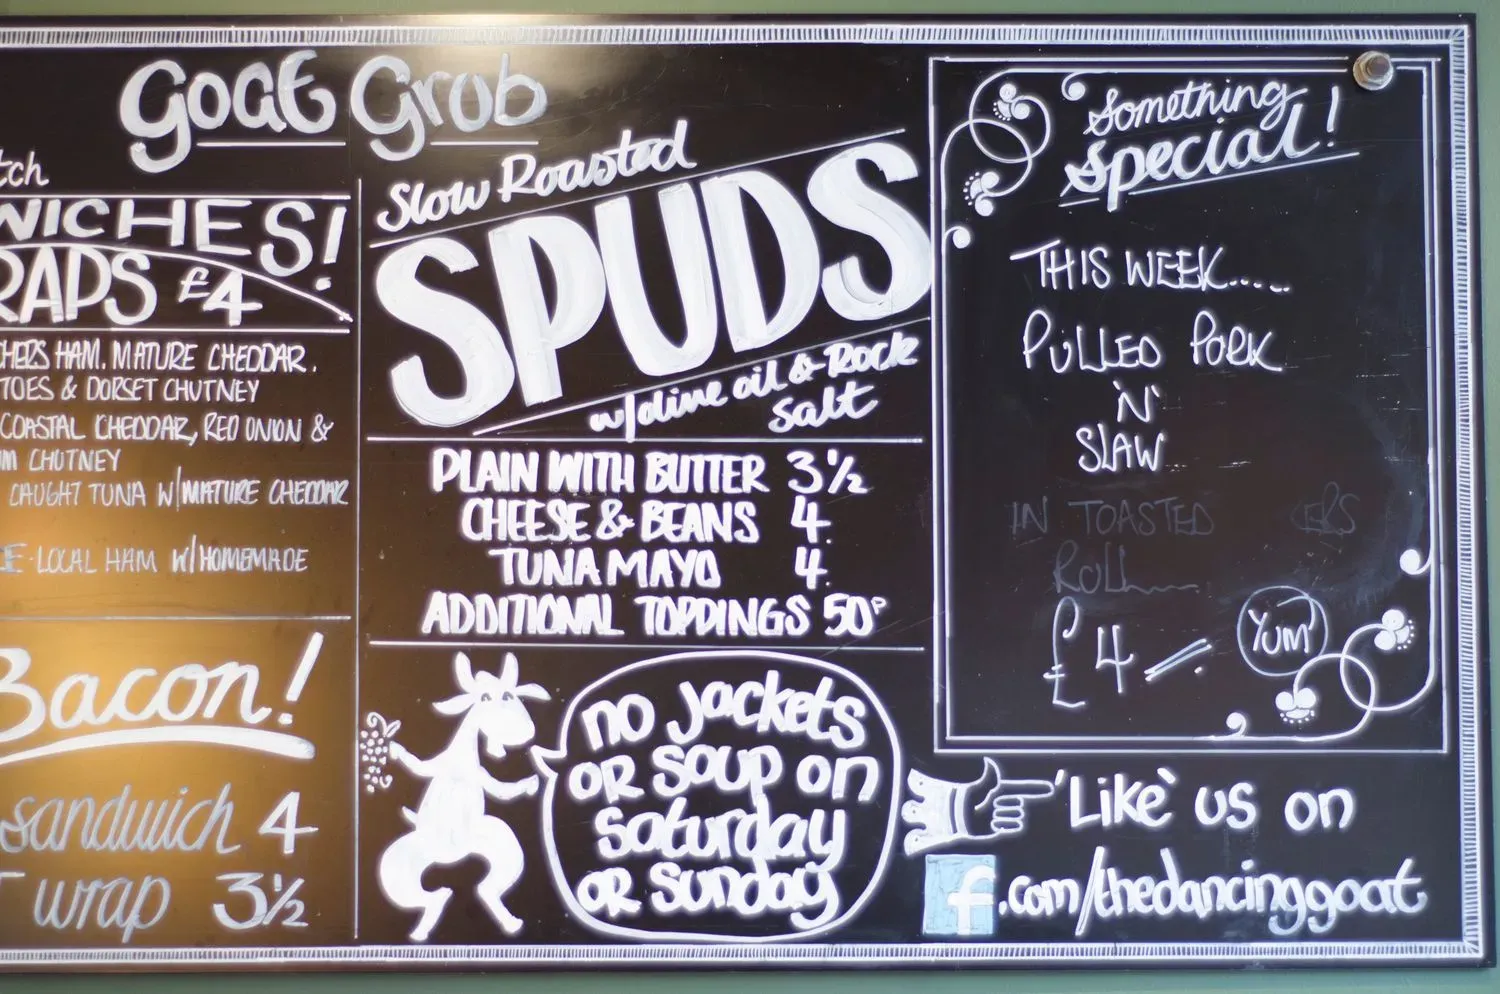 Goat Grub
tch
WICHES!
RAPS £4
CHERS HAM. MATURE CHEDDAR.
TOES & DORSET CHUTNEY
COASTAL CHEDDAR, RED ONION &
UM CHUTNEY
CAUGHT TUNA W/MATURE CHEDDAR
E·LOCAL HAM W/HOMEMADE
Bacon!
sandwich 4
wrap 3½
Slow Roasted
SPUDS
w/olive oil & Rock
Salt
PLAIN WITH BUTTER 3½
CHEESE & BEANS 4.
TUNA MAYO 4.
ADDITIONAL TOPPINGS 50P
no jackets
or soup on
Saturday
or Sunday
Something
Special!
THIS WEEK.....
PULLED PORK
'N'
SLAW
IN TOASTED
ROLL
£4
YUM
'Like' us on
f.com/thedancinggoat